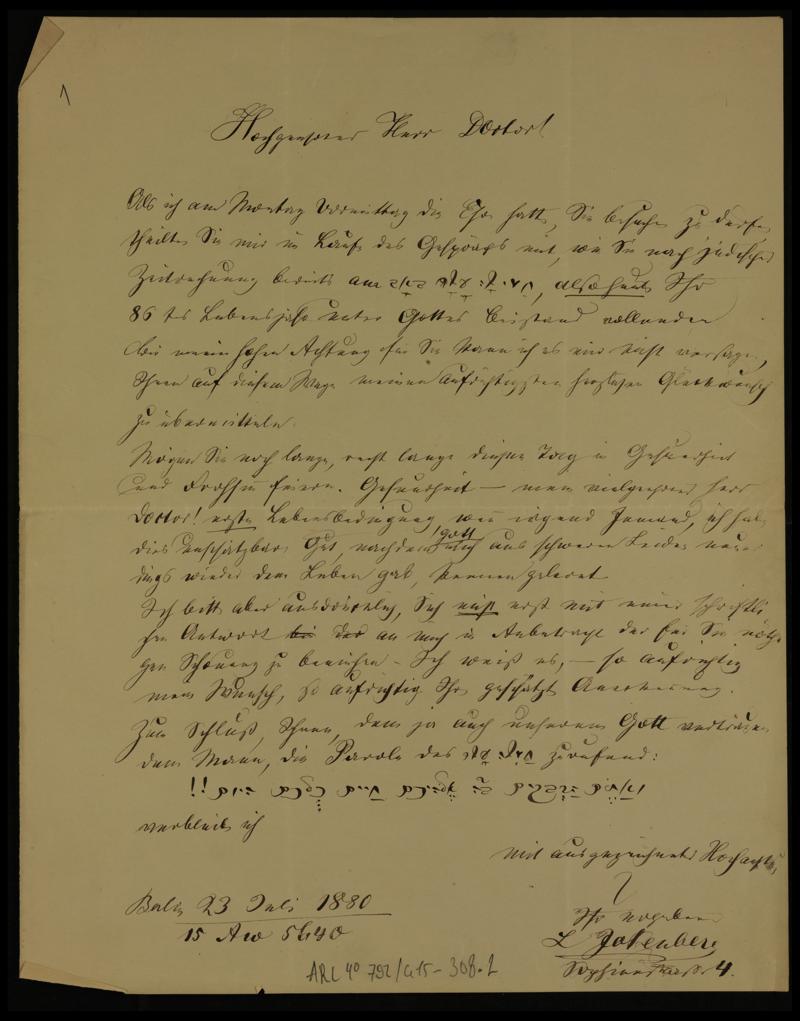 1
Hochgeehrter Herr Doctor!
Als ich am Montag Vormittag die Ehre hatte, Sie besuchen zu dürfen,
theilten Sie mir im Laufe des Gesprächs mit, wie Sie nach jüdischer
Zeitrechnung bereits am also heute Ihr
86 tes Lebensjahr unter Gottes Beistand vollenden
Bei meiner hohen Achtung für Sie kann ich es mir nicht versagen,
Ihnen auf diesem Wege meinen aufrichtigsten herzlichen Glückwunsch
zu übermitteln.
Mögen Sie noch lange, recht lange diesen Tag in Gesundheit
und Frohsinn feiern. Gesundheit – mein vielgeehrter Herr
Doctor! erste Lebensbedingung, wie irgend Jemand, ich habe
dies unschätzbare Gut, nachdem Gott mich aus schweren Leiden neuer
dings wieder dem Leben gab, kennen gelernt
Ich bitte aber ausdrücklich, Sich nicht erst mit einer schriftli
chen Antwort an mich in Anbetracht der für Sie nöthi
gen Schonung zu bemühen – Ich weiß es, – so aufrichtig
mein Wunsch, so aufrichtig Ihre geschätzte Anerkennung.
Zum Schluß, Ihnen, dem ja auch unserem Gott vertrauen
dem Mann, die Parole des zurufend:
verbleibe ich
mit ausgezeichneter Hochachtung
Berlin 23 Juli 1880
15 Aw 5640
Ihr ergebener
L
Sophienstrasse 4.
ARC 4° 792/G15-308.1